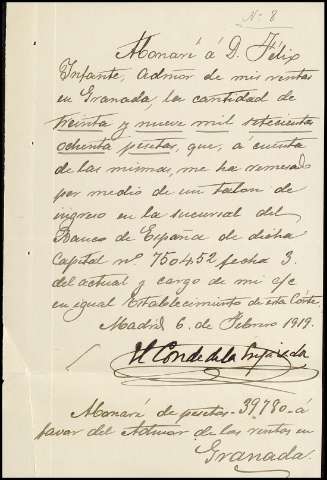 N.º 8
Abonaré á D. Félix
Infante, Admor de mis rentas
en Granada, la cantidad de
treinta y nueve mil setecientas
ochenta pesetas, que, á cuenta
de las mismas, me ha remesado
por medio de un talon de
ingreso en la sucursal del
Banco de España de dicha
Capital nº 750452 fecha 3
del actual y cargo de mi c/c
en igual Establecimiento de esta Córte.
Madrid 6. de Febrero 1919.
El Conde de la
Abonaré de pesetas 39780 á
favor del Admor de las rentas en
Granada.